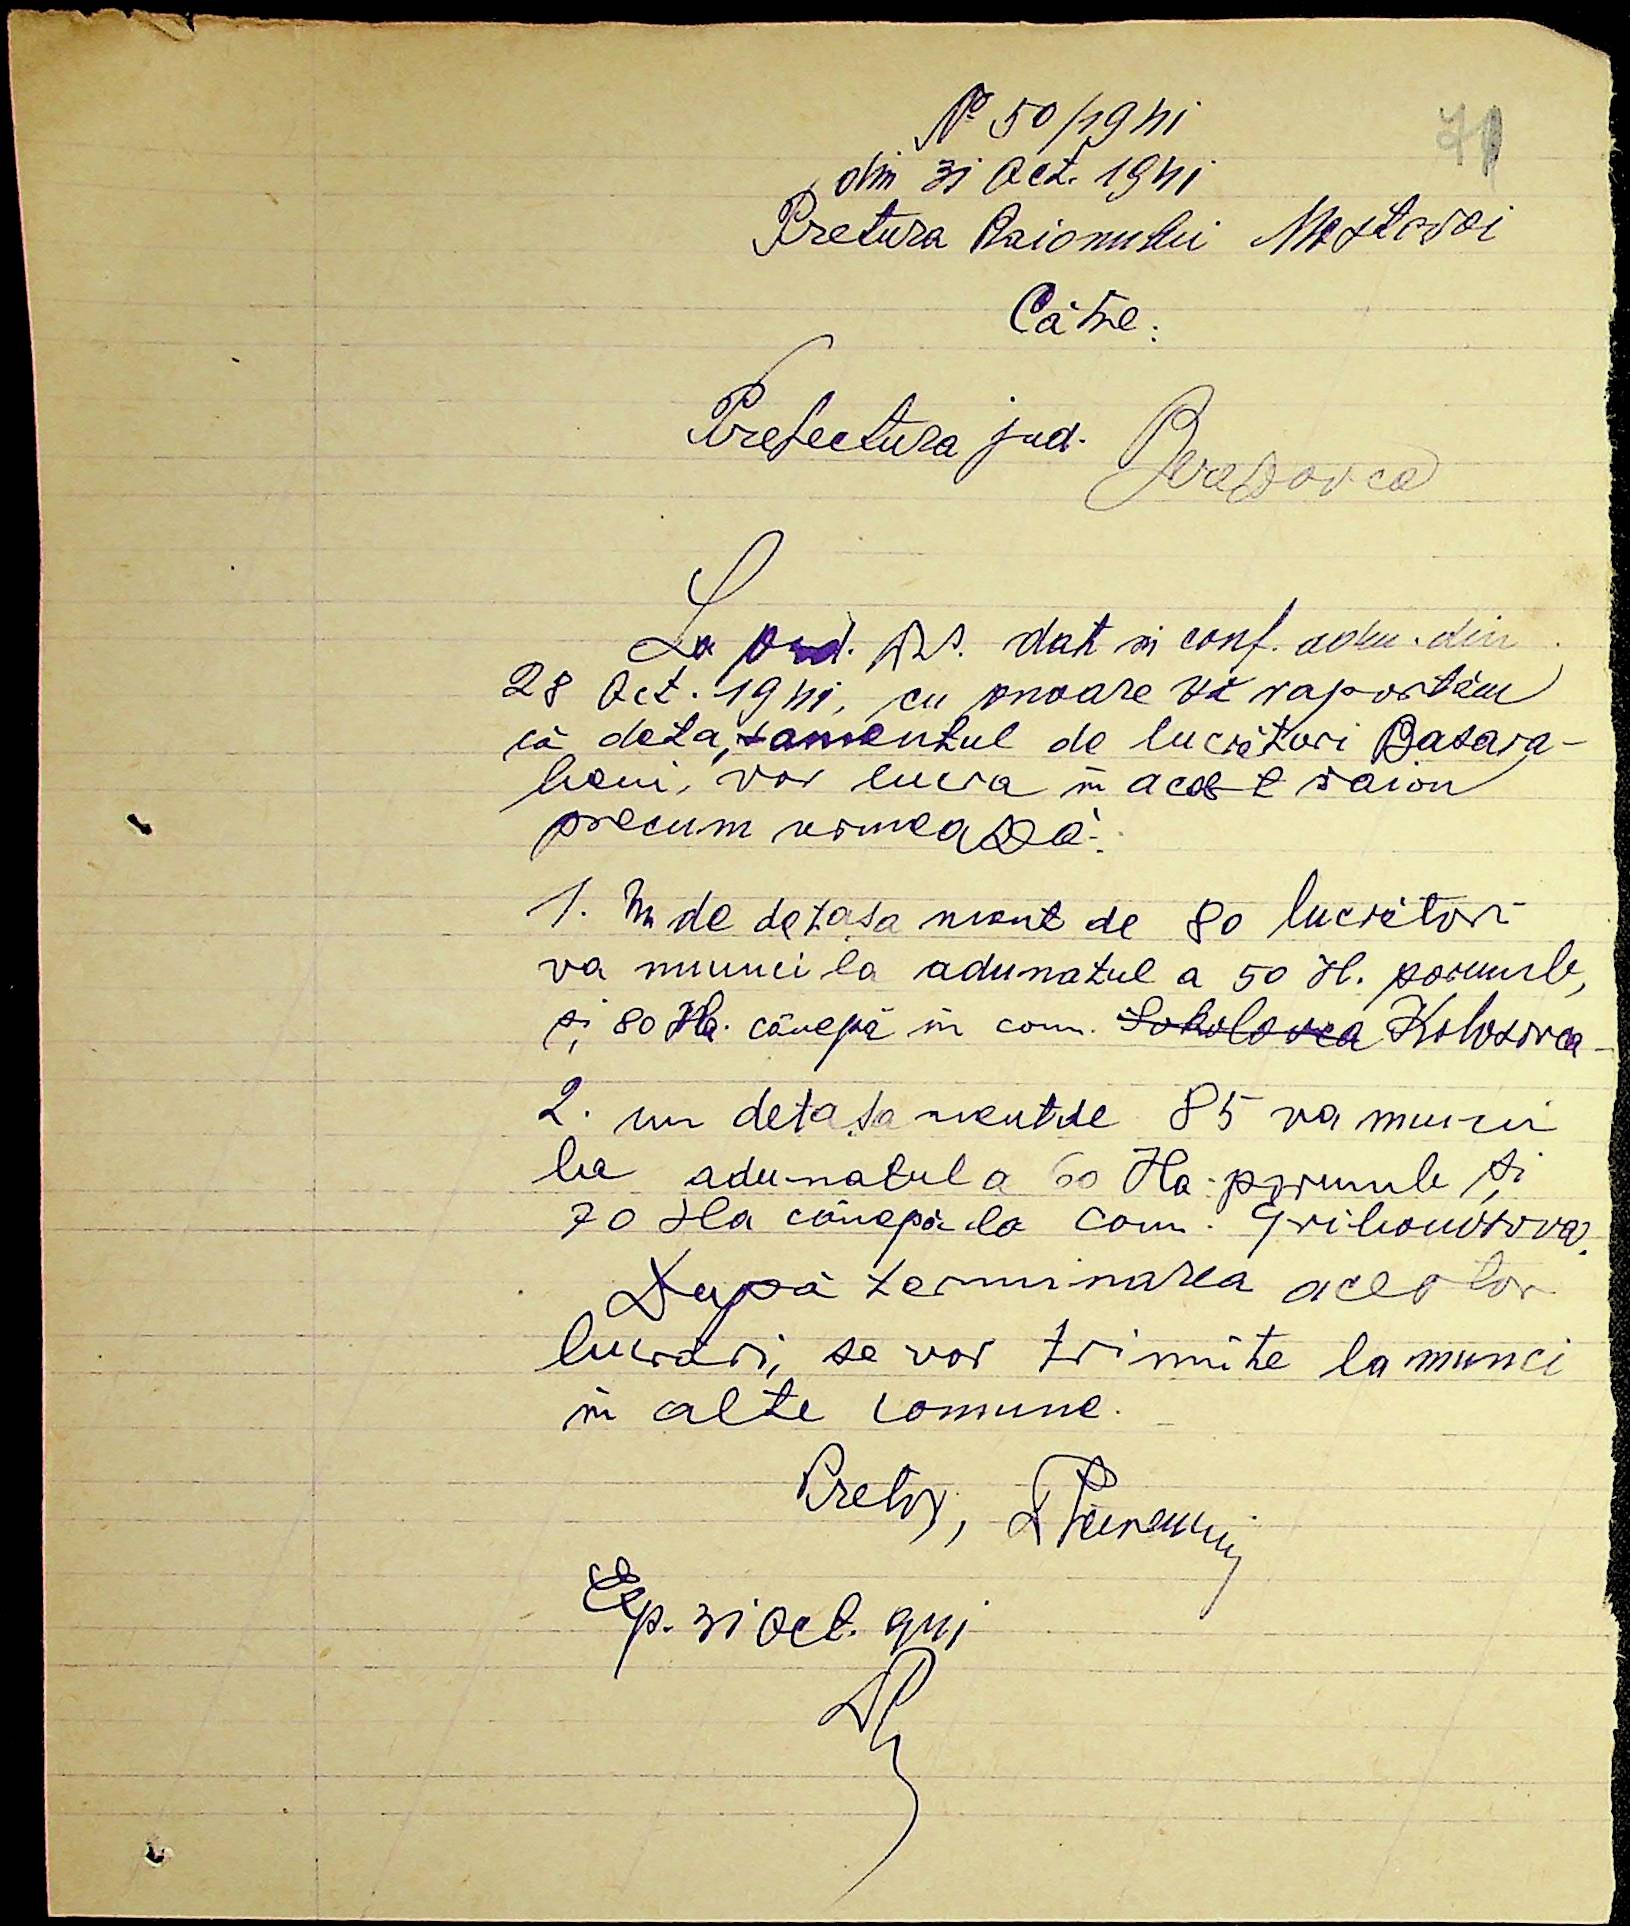 No 50/1941
71
din 31 Oct. 1941
Pretura Raionului Mostovoi
Către:
Prefectura jud. Berezovca
La ord. Dvs. dat în conf. adm. din
28 Oct. 1941, cu onoare vă raportăm
că detașamentul de lucrători Basara-
beni, vor lucra în acest raion
precum urmează:
1. Un de detașament de 80 lucrători
va munci la adunatul a 50 H. porumb,
și 80 Ha. cânepă în com. Sokolovca Kolosovca
2. un detașament de 85 va munci
la adunatul a 60 Ha porumb și
70 Ha cânepă la com.
După terminarea acestor
lucrări, se vor trimite la munci
în alte comune.
Pretor,
Exp. 31 Oct. 941